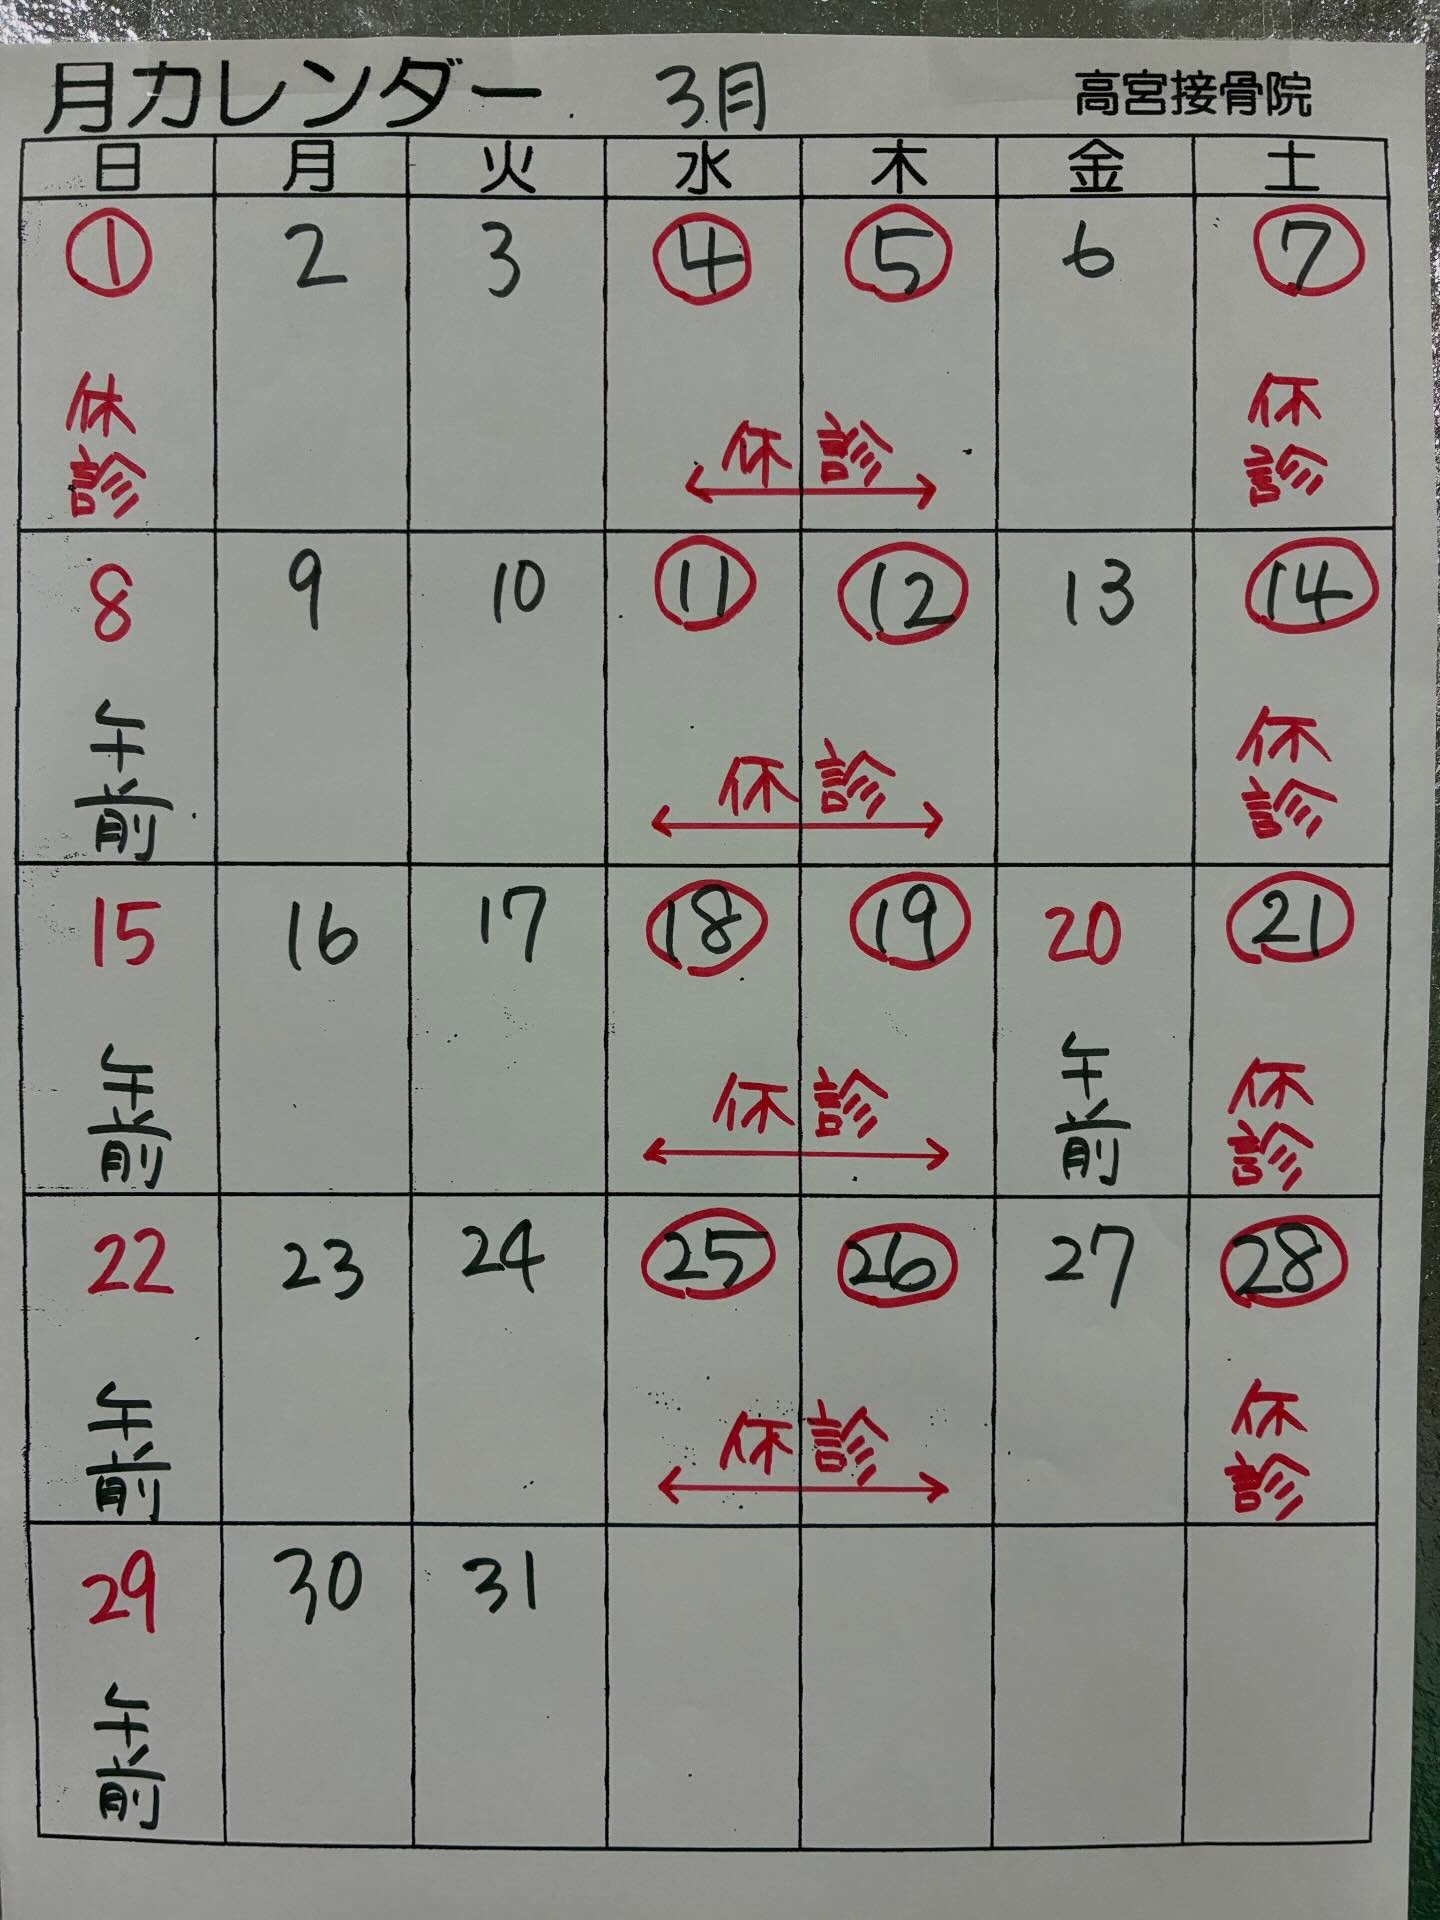 月カレンダー 3月 高宮接骨院
日 月 火 水 木 金 土
1 2 3 4 5 6 7
休診 休診 休診
8 9 10 11 12 13 14
午前 休診 休診
15 16 17 18 19 20 21
午前 休診 午前 休診
22 23 24 25 26 27 28
午前 休診 休診
29 30 31
午前